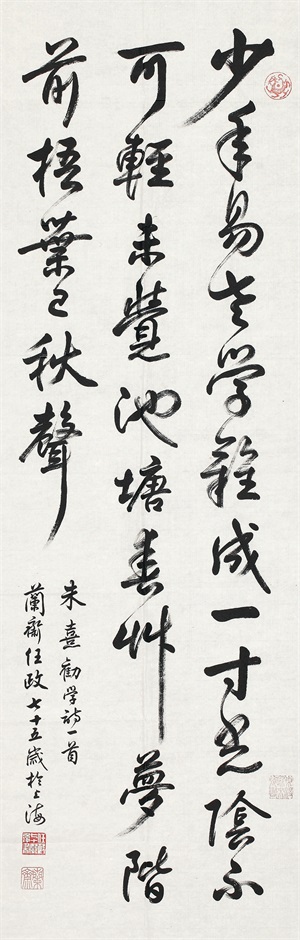 少年易老学難成一寸光陰不
可輕未覺池塘春艸夢階
前梧葉已秋聲
朱熹勸学詩一首
蘭齋任政七十五歲於上海